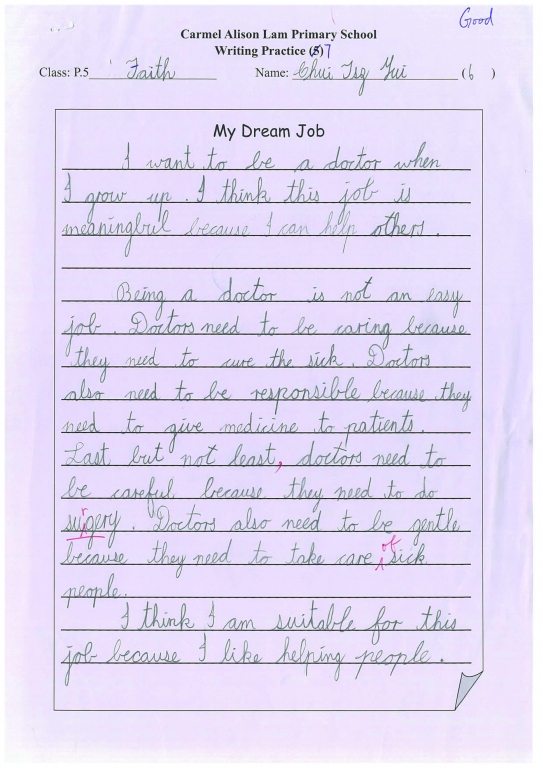 Good
Carmel Alison Lam Primary School
Writing Practice (5) 7
Class: P.5 Faith Name: Chui Tsz Yui (6)
My Dream Job
I want to be a doctor when
I grow up. I think this job is
meaningbul because I can help others.
Being a doctor is not an easy
job. Doctors need to be caring because
they need to cure the sick. Doctors
also need to be responsible because they
need to give medicine to patients.
Last but not least, doctors need to
be careful because they need to do
r
sugery. Doctors also need to be gentle
of
because they need to take care sick
people.
I think I am suitable for this
job because I like helping people.